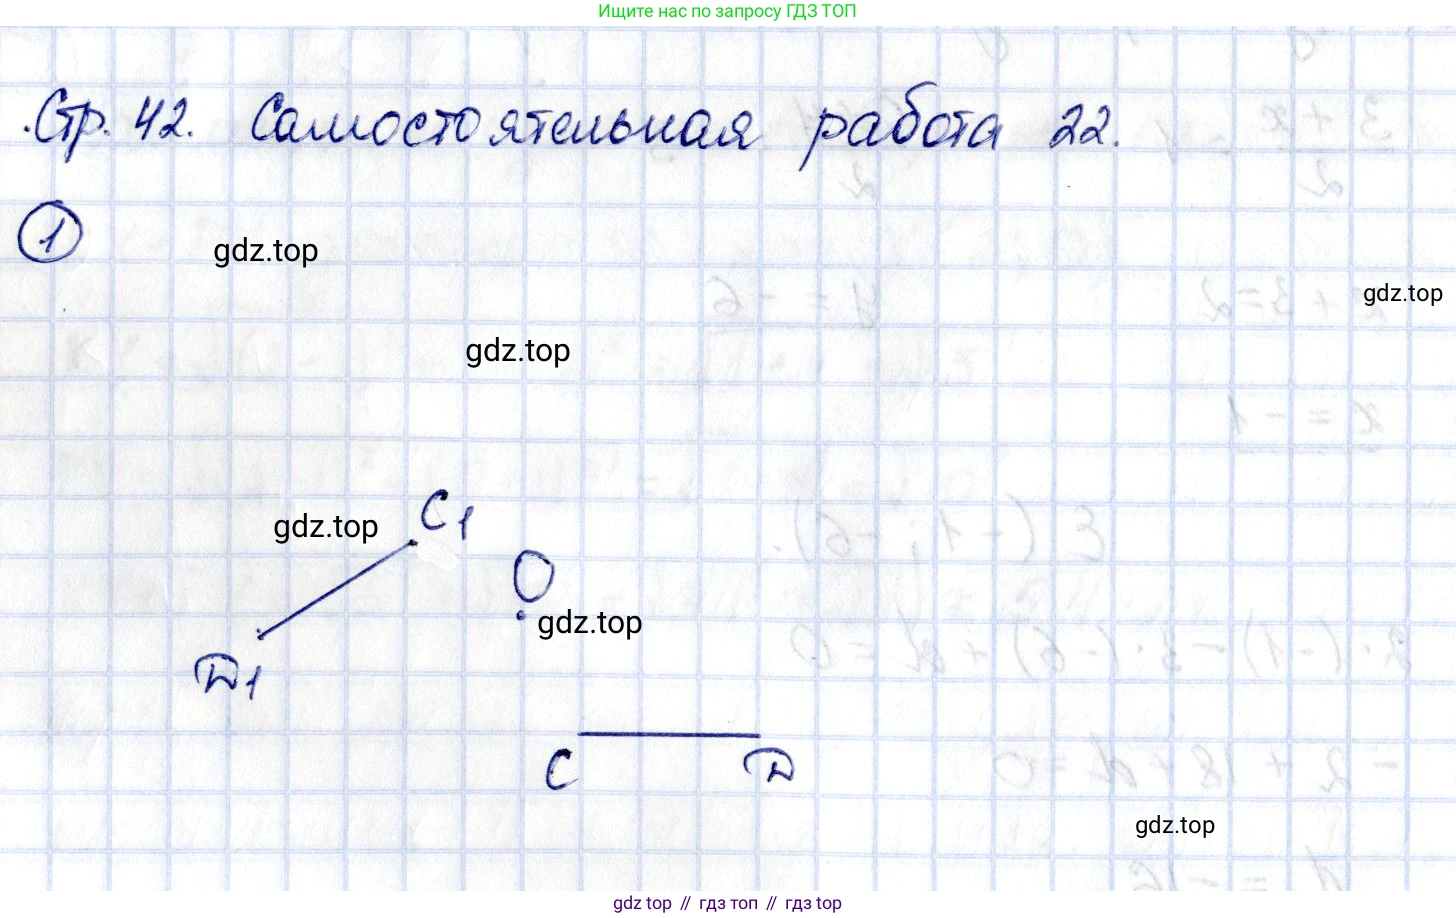 Ищите нас по запросу ГДЗ ТОП
Стр. 42. Самостоятельная работа 22.
1
gdz.top
gdz.top
gdz.top
C1
gdz.top
O
gdz.top
D1
C
D
gdz.top
gdz.top // гдз топ // гдз.top